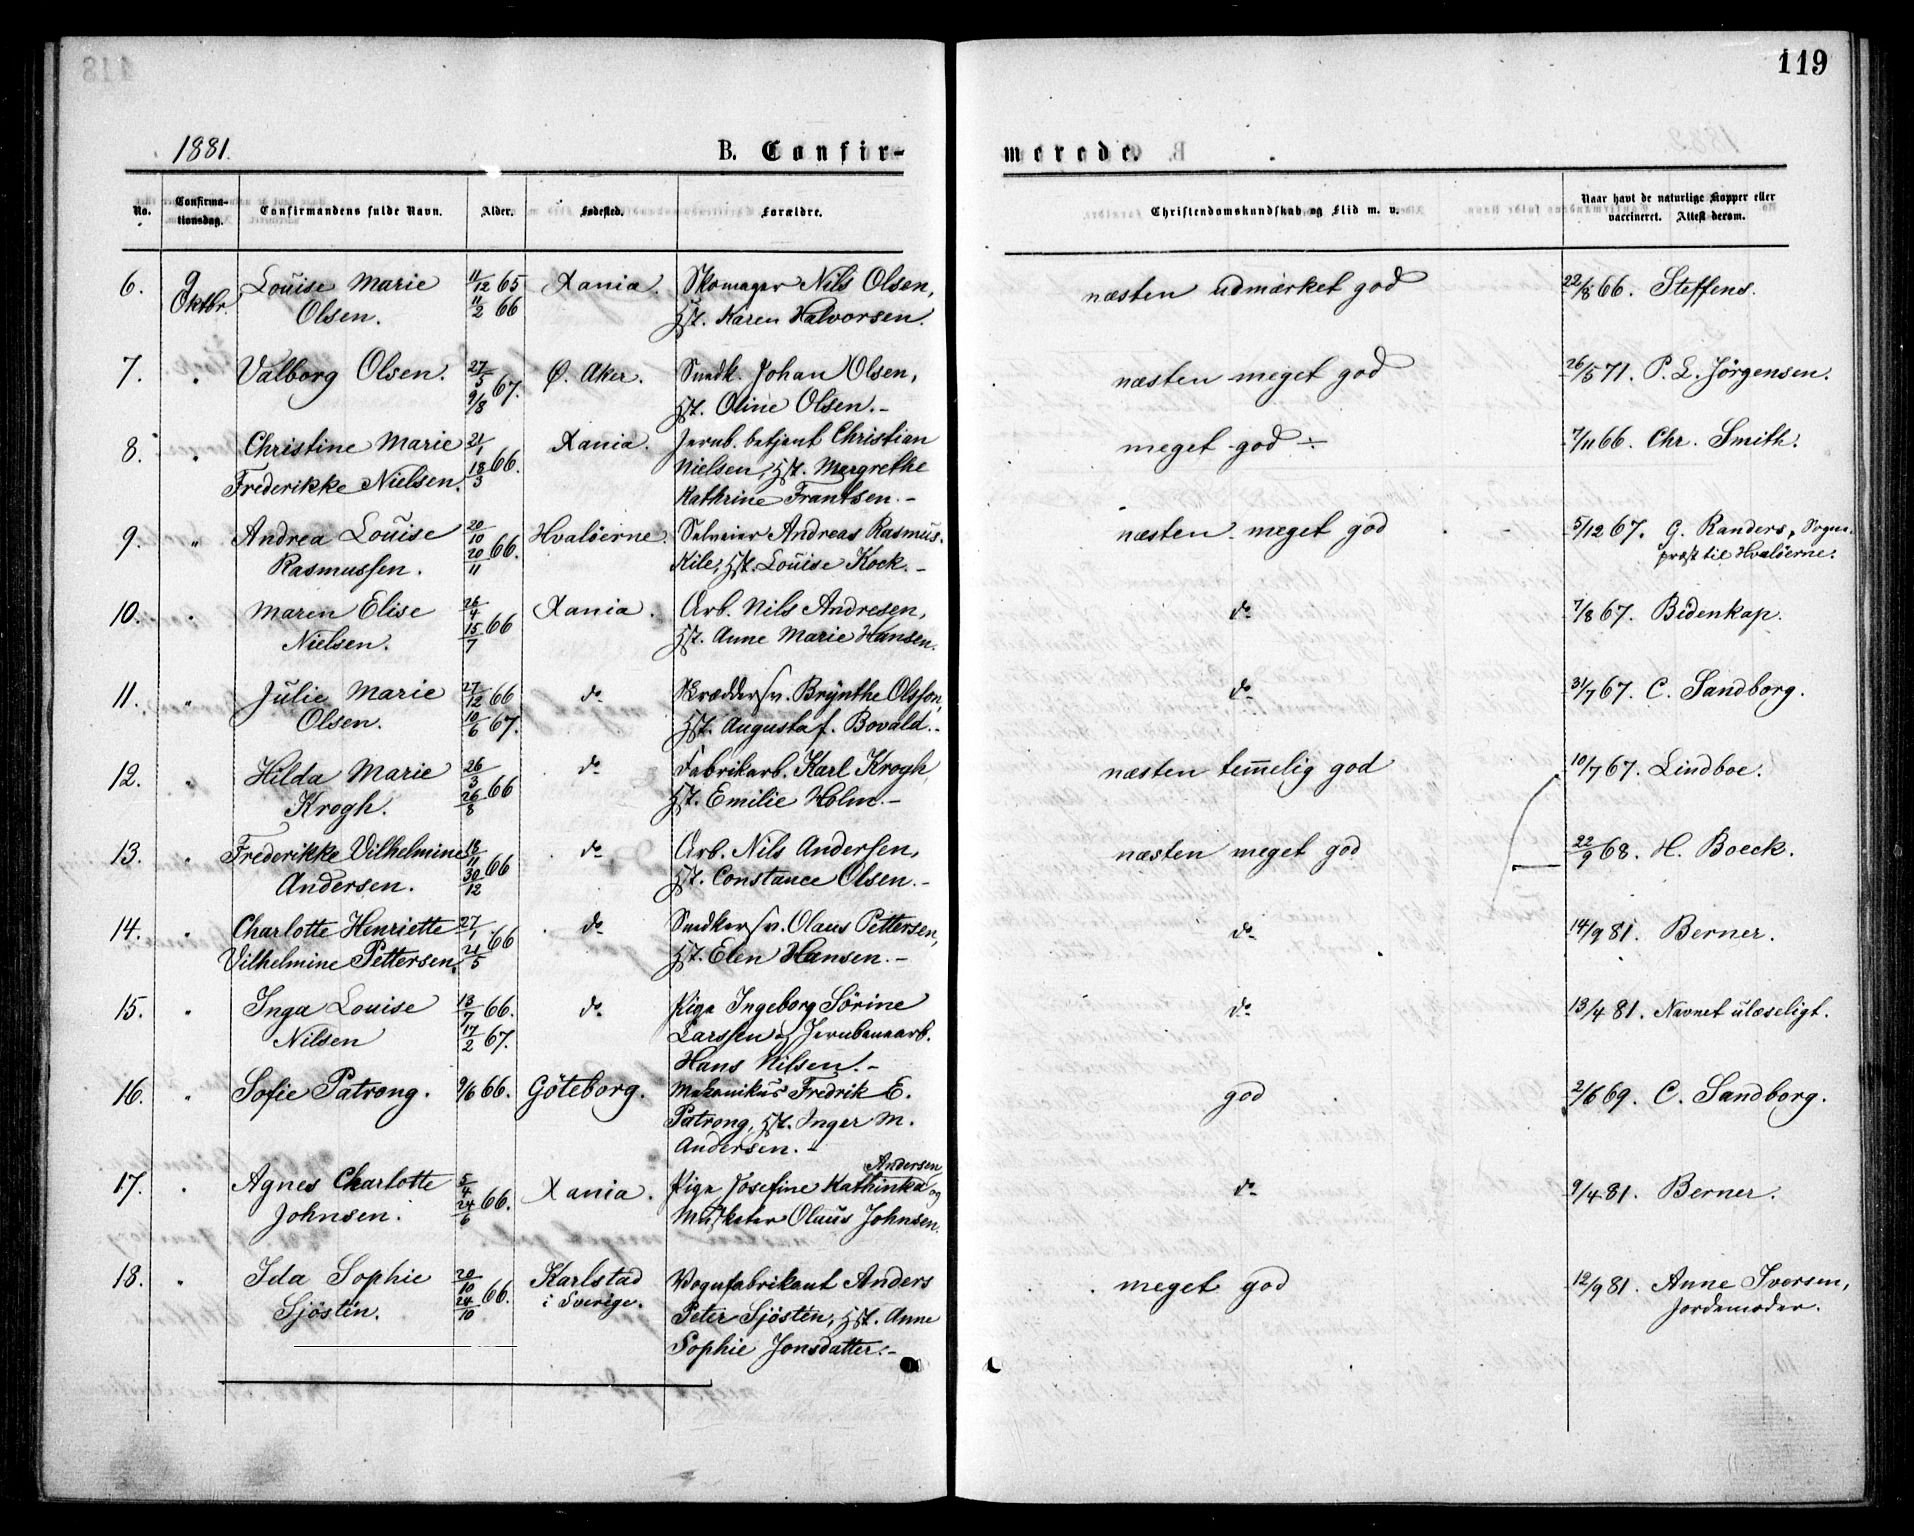 119
1881.
B. Confir-
merede.
No.
Confirma-
tionsdag.
Confirmandens fulde Navn.
Alder.
Fødested.
Forældre.
Christendomskundskab og Flid m. v.
Naar havt de naturlige Kopper eller
vaccineret. Attest derom.
6. 9 Louise Marie 11/12 65 Xania. Skomager Nils Olsen, næsten udmærket god 22/8 66. Steffens.
Oktbr. Olsen. 11/2 66 Hst. Karen Halvorsen.
7. " Valborg Olsen. 27/5 67. Ø. Aker. Snedk. Johan Olsen, næsten meget god 26/5 71. P. L. Jørgensen.
9/8 Hst. Oline Olsen.-
8. " Christine Marie 21/1 66. Xania. Jernb. betjent Christian meget god ÷ 7/11 66. Chr. Smith.
Frederikke Nielsen. 18/3 Nielsen, Hst. Margrethe
Kathrine Frantsen.-
9. " Andrea Louise 20/10 66. Hvaløerne. Selveier Andreas Rasmus. næsten meget god 5/12 67. G. Randers, Sogne-
Rasmussen. 20/11 Kile, Hst. Louise Kock.- præst til Hvaløerne.
10. " Maren Elise 26/4 66 Xania. Arb. Nils Andresen, do 7/8 67. Bidenkap.
Nielsen. 15/7 Hst. Anne Marie Hansen.
11. " Julie Marie 27/12 66 do Skræddersv. Brynthe Olsson, do 31/7 67. C. Sandborg.
Olsen. 10/6 67. Hst. Augusta f. Bovald.-
12. " Hilda Marie 26/3 66 do Fabrikarb. Karl Krogh næsten temmelig god 10/7 67. Lindboe.
Krogh. 26/8 Hst. Emilie Holm.-
13. " Frederikke Vilhelmine 18/11 66 do Arb. Nils Andersen, næsten meget god 22/9 68. H. Boeck.
Andersen. 30/12 Hst. Constance Olsen.-
14. " Charlotte Henriette 27/1 66 do Snedkersv. Olaus Pettersen, do 14/9 81. Berner.
Vilhelmine Pettersen. 21/5 Hst. Elen Hansen.-
15. " Inga Louise 13/7 66. do Pige Ingeborg Sørine do 13/4 81. Navnet ulæseligt.
Nilsen 17/2 67. Larssen og Jernbanearb.
Hans Nilsen.-
16. " Sofie Patrong. 9/6 66. Göteborg. Mekanikus Fredrik E. god 2/6 69. C. Sandborg.
Patrong, Hst. Inger M.
Andersen.-
Andersen
17. " Agnes Charlotte 5/4 66. Xania. Pige Josefine Kathinka og do 9/4 81. Berner.
Johnsen. 24/6 Musketer Olaus Johnsen.
18. " Ida Sophie 20/10 66. Karlstad Vognfabrikant Anders meget god 12/9 81. Anne Iversen,
Sjöstén. 24/10 i Sverige. Peter Sjösten, Hst. Anne Jordemoder.
Sophie Jonsdatter.-